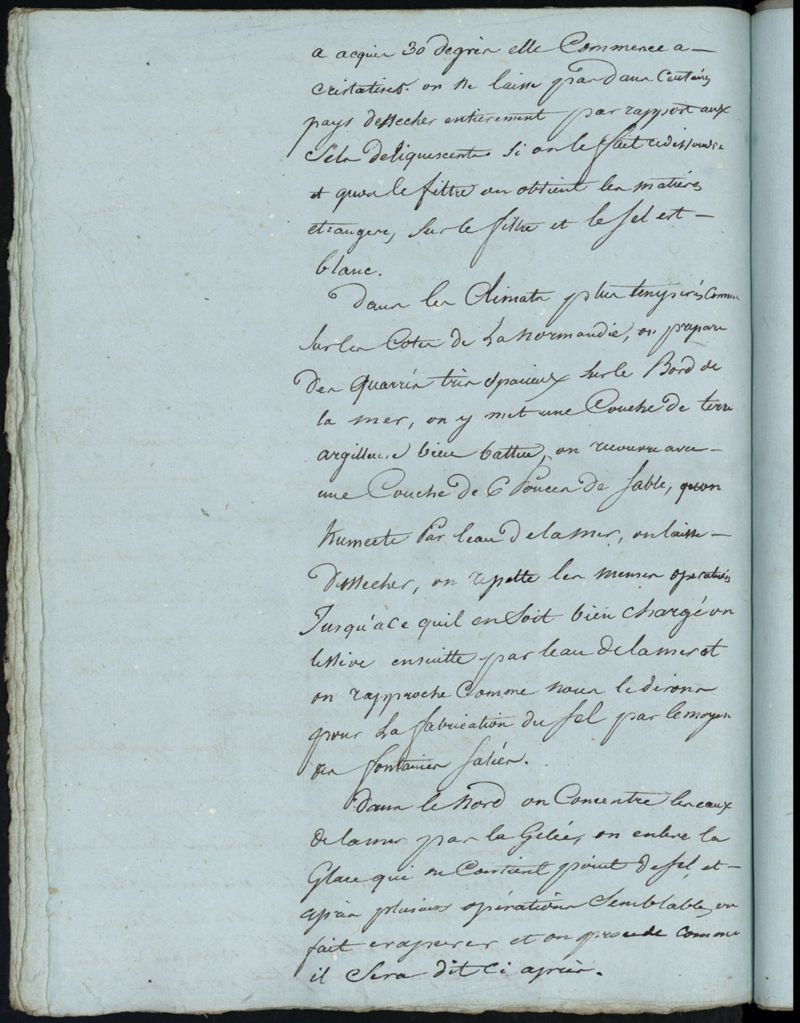 a acquis 30 degrés elle Commence a
cristaliser. on ne laisse pas dans Certains
pays dessecher entierement par rapport aux
Sels deliquescents si on le fait redissoudre
et quon le filtre on obtient les matières
etrangeres sur le filtre et le sel est
blanc.
Dans les Climats plus temperés Comme
sur les Cotes de La Normandie, on prepare
des quarrés très spacieux sur le Bord de
la mer, on y met une Couche de terre
argilleuse bien battue, on recouvre avec
une Couche de 6 Pouces de sable, quon
humecte Par leau de la mer, on laisse
dessecher, on repette les memes operations
Jusqu'a ce quil en soit bien chargé on
lessive ensuitte par leau de la mer et
on rapproche Comme nous le dirons
pour La fabrication du sel par le moyen
des fontaines salées.
Dans le Nord on Concentre les eaux
de la mer par la Gelée, on enleve la
Glace qui ne Contient point de sel et
après plusieurs opérations Semblables, on
fait evaporer et on procede comme
il Sera dit Ci après.